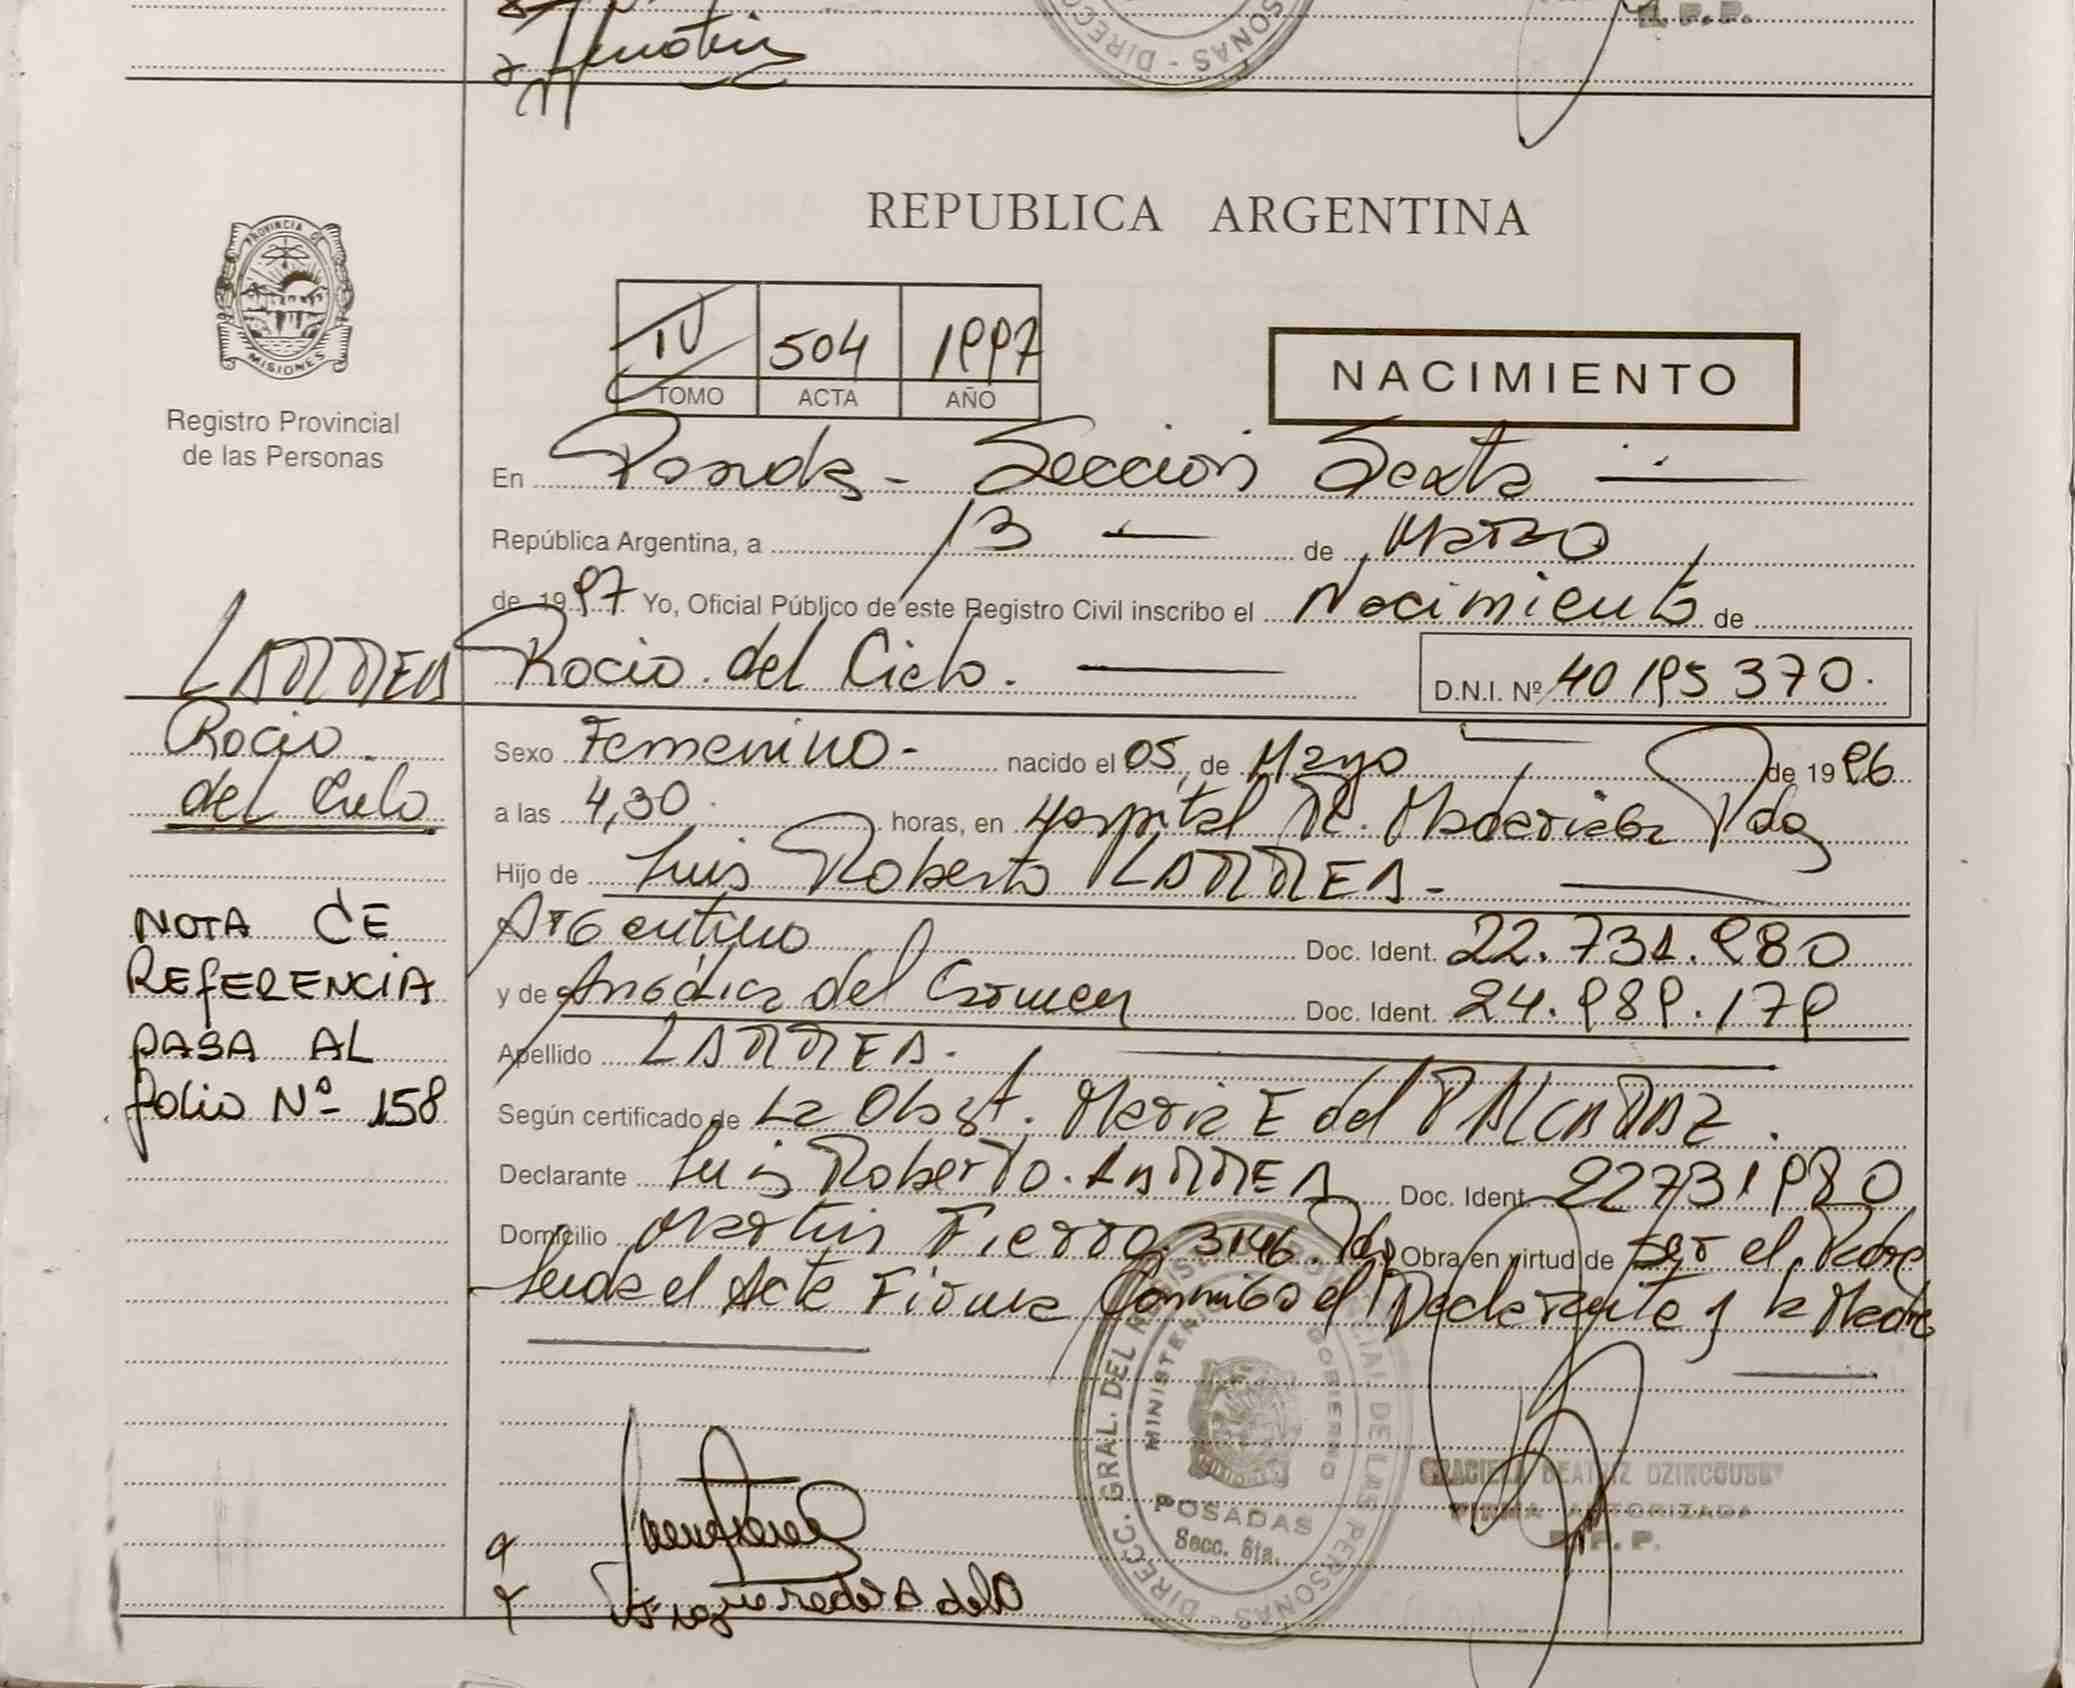 REPUBLICA ARGENTINA
PROVINCIA DE
MISIONES
Registro Provincial
de las Personas
IV 504 1997
TOMO ACTA AÑO
NACIMIENTO
En Posadas - Seccion Sexta
República Argentina, a 13 de Marzo
de 1997 Yo, Oficial Público de este Registro Civil inscribo el Nacimiento de
Rocio del Cielo. D.N.I. Nº 40195370.
LARREA
Rocio
del Cielo
NOTA DE
REFERENCIA
PASA AL
folio Nº 158
Sexo Femenino - nacido el 05 de Mayo de 1996
a las 4,30 horas, en Hospital R. Madariaga Pdas
Hijo de Luis Roberto LARREA -
Argentino Doc. Ident. 22.731.980
y de Angélica del Carmen Doc. Ident. 24.989.179
Apellido LARREA.
Según certificado de La Obst. Maria E del P ALCARAZ.
Declarante Luis Roberto LARREA Doc. Ident. 22731980
Domicilio Martin Fierro 3146. Pdas Obra en virtud de ser el Padre
Leida el Acta Firma Conmigo el Declarante y la Madre
DIRECC. GRAL. DEL REGISTRO PROVINCIAL DE LAS PERSONAS
MINISTERIO GOBIERNO
POSADAS
Secc. 6ta.
GRACIELA BEATRIZ
FIRMA AUTORIZADA
R. P. P.